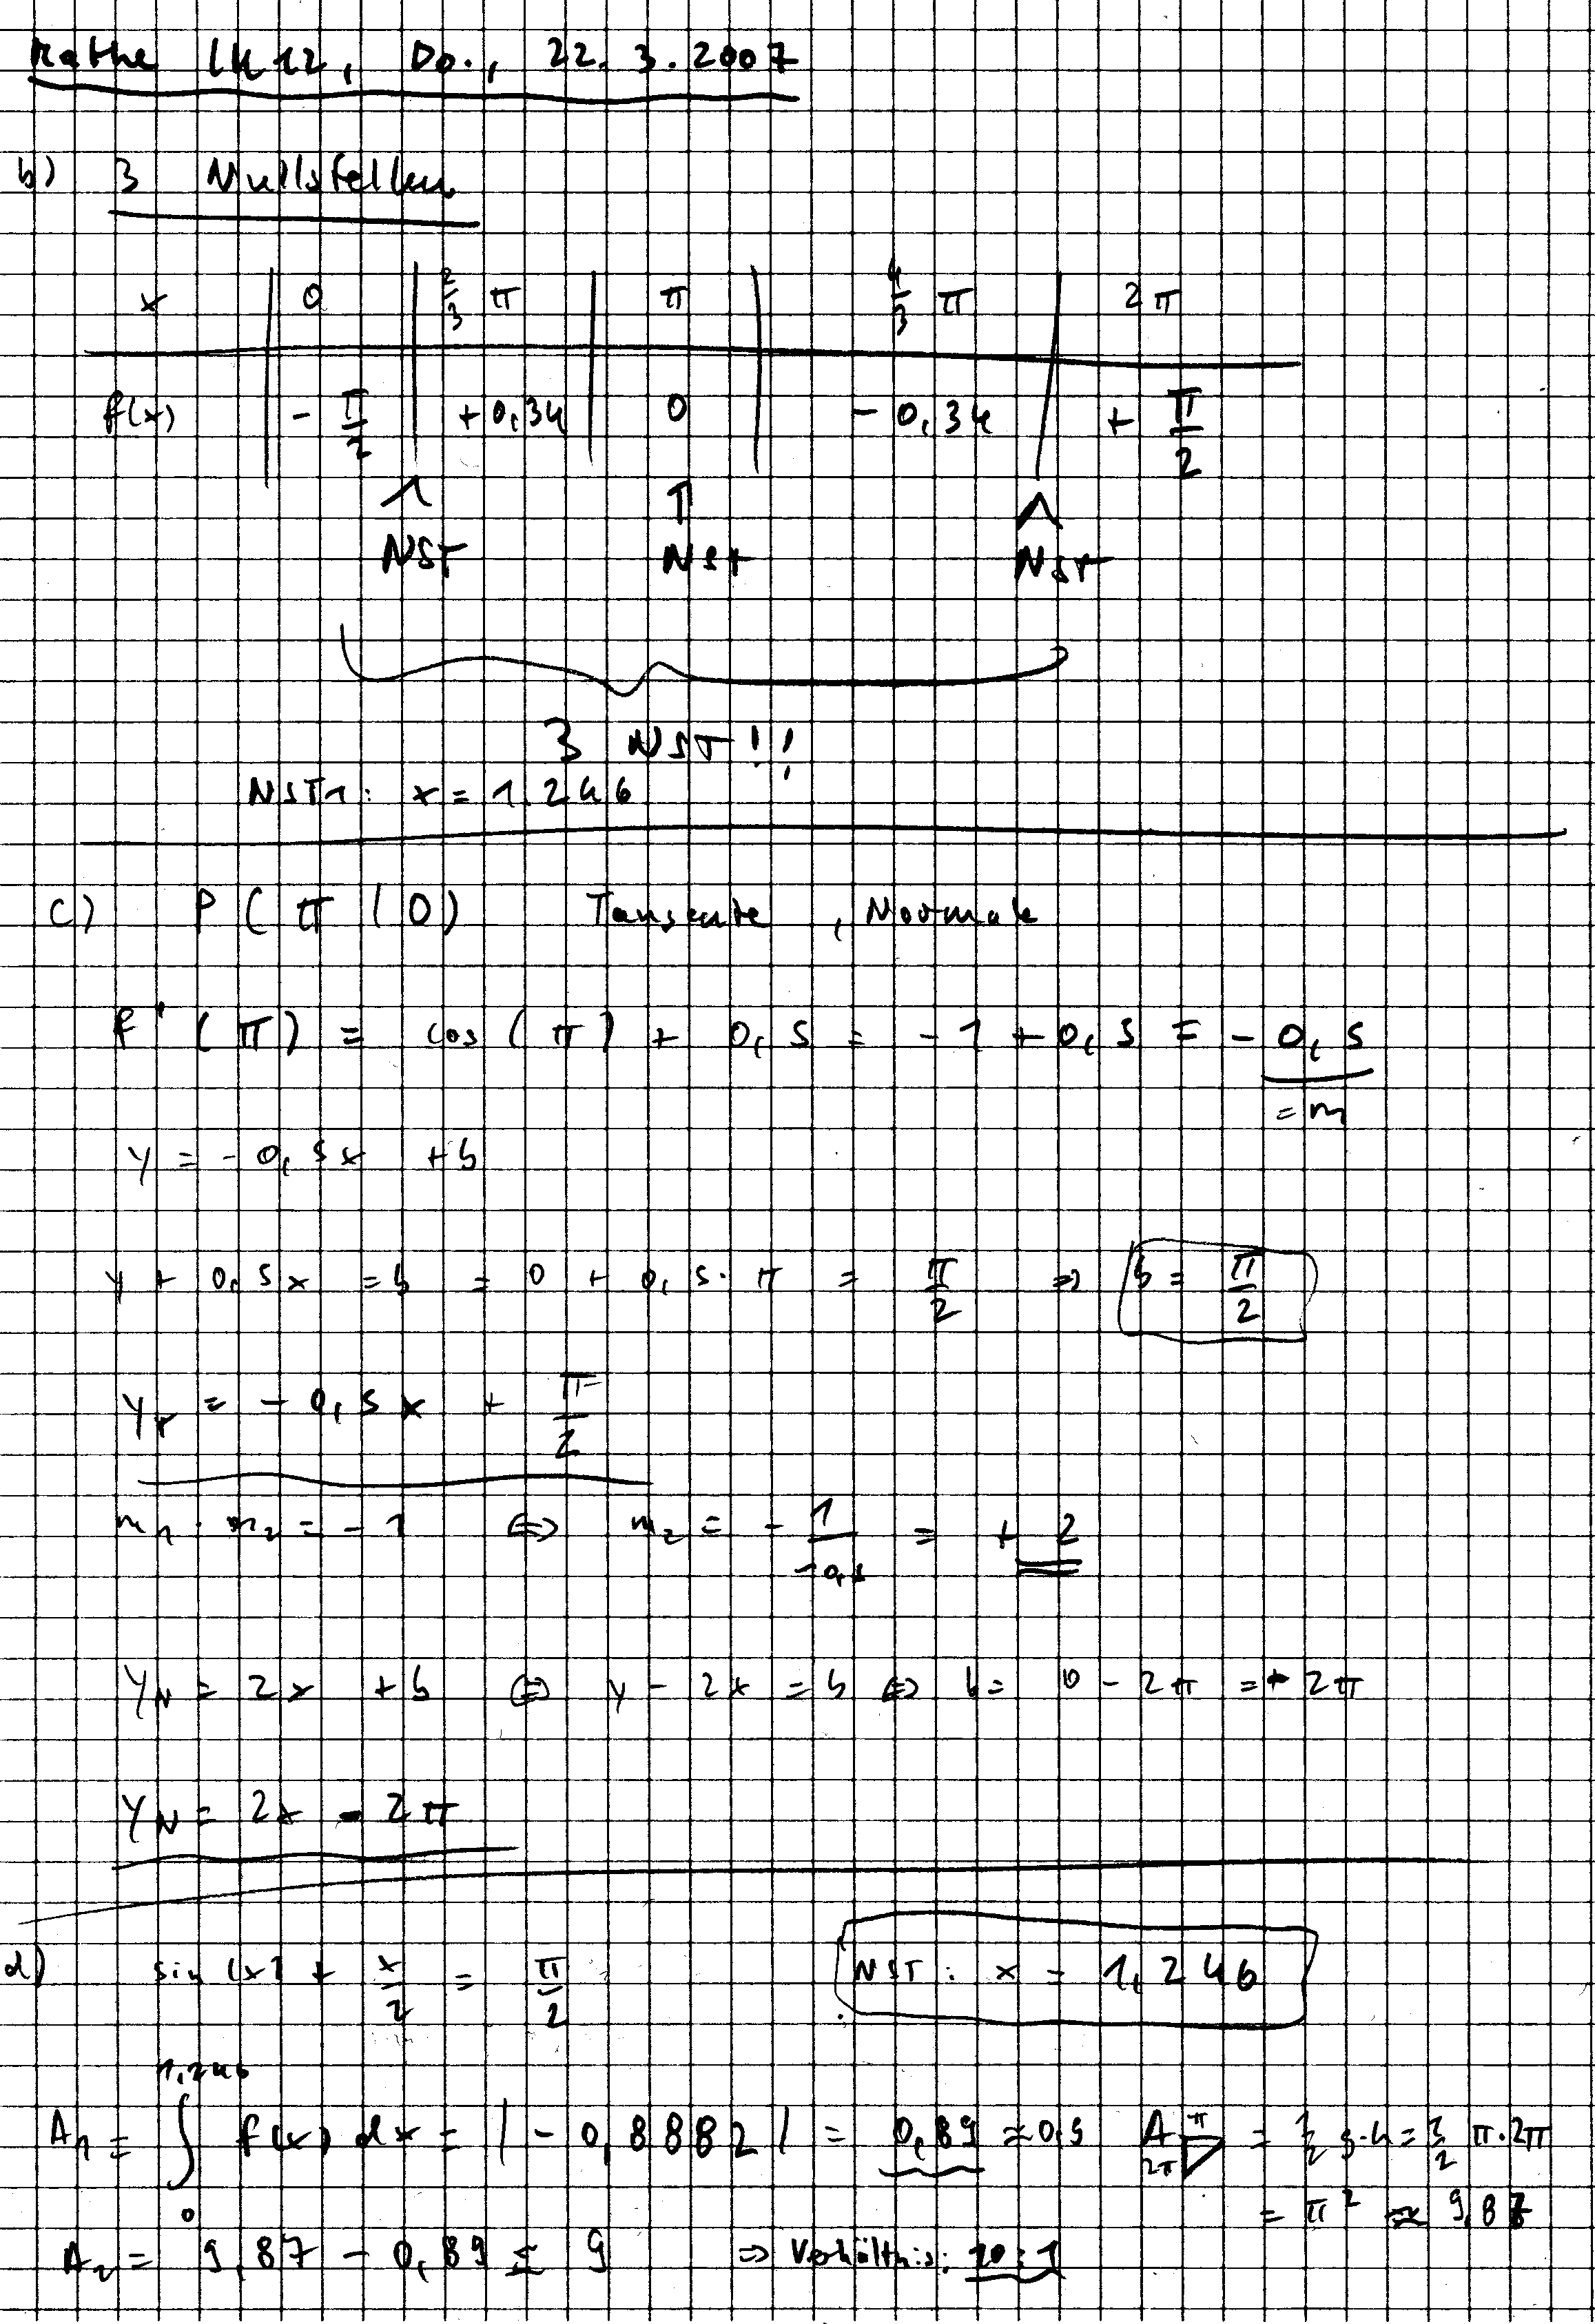 Mathe LK 12, Do., 22.3.2007
b) 3 Nullstellen
x | 0 | 2/3 π | π | 4/3 π | 2π
f(x) | - π/2 | +0,34 | 0 | - 0,34 | + π/2
↑ ↑ ↑
NST NST NST
3 NST!!
NST1: x = 1.246
c) P(π|0) Tangente, Normale
f'(π) = cos(π) + 0,5 = -1 + 0,5 = -0,5
= m
y = -0,5x + b
y + 0,5x = b = 0 + 0,5·π = π/2 ⇒ b = π/2
yT = -0,5x + π/2
m1 · m2 = -1 ⇔ m2 = - 1/-0,5 = + 2
yN = 2x + b ⇔ y - 2x = b ⇔ b = 0 - 2π = - 2π
yN = 2x - 2π
d) sin(x) + x/2 = π/2 NST: x = 1,246
A1 = ∫ 0 1,246 f(x) dx = |-0,8882| = 0,89 ≈ 0,9 A π 2π = 1/2 g·h = 1/2 π·2π
= π² ≈ 9,87
A2 = 9,87 - 0,89 ≤ 9 ⇒ Verhältnis: 10:1